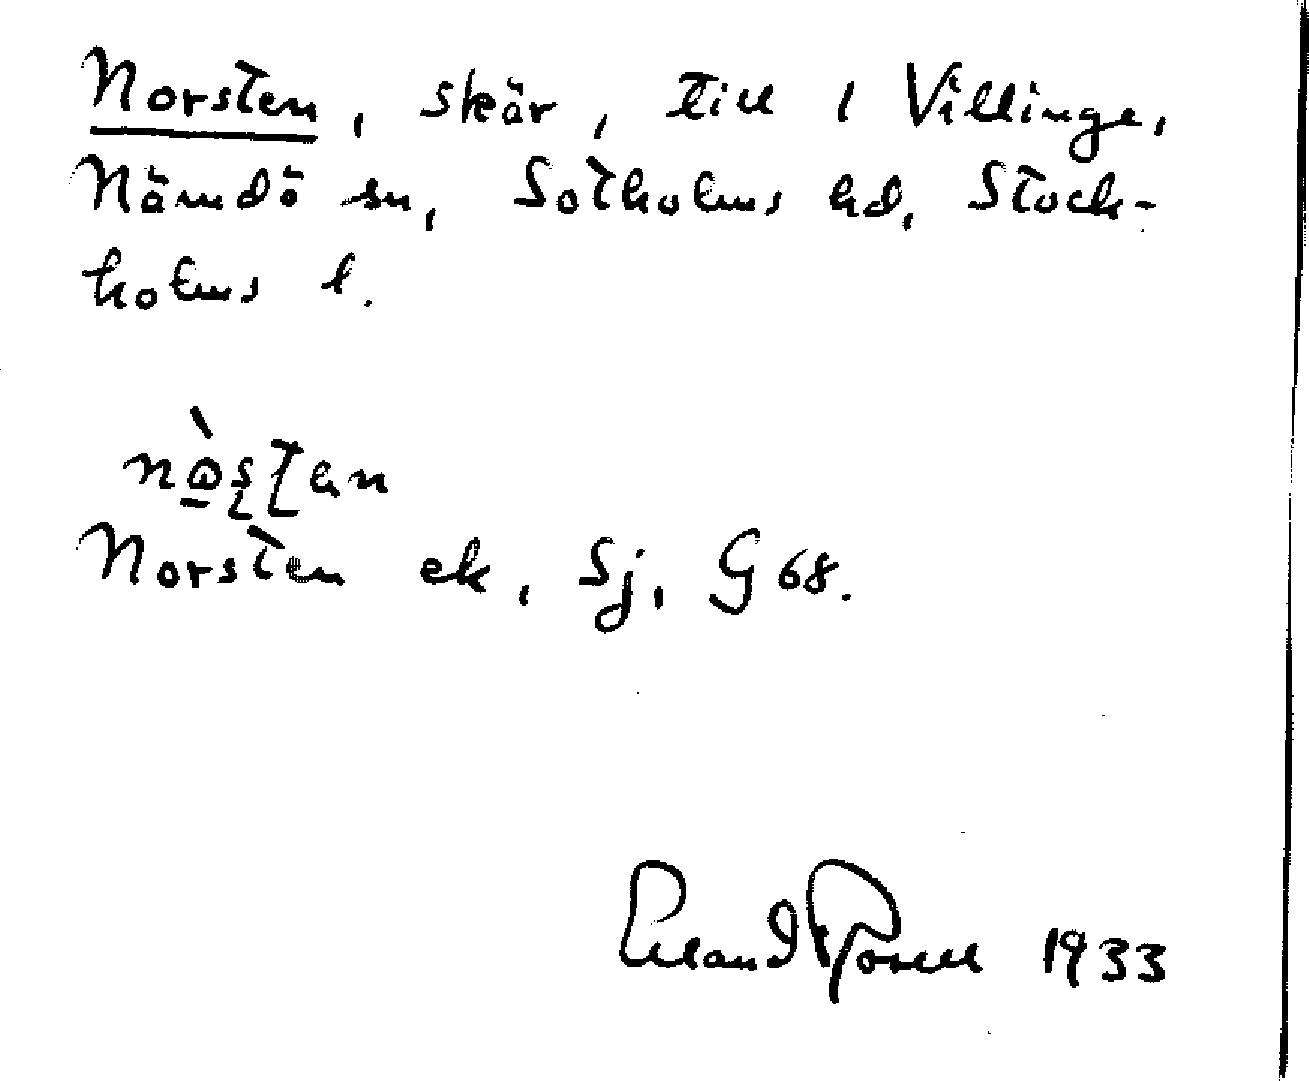 Norsten, skär, till 1 Villinge,
Nämdö sn, Sotholms hd, Stock-
holms l.
nò̱ʂʈen
Norsten ek, Sj, G 68.
Erland Rosell 1933